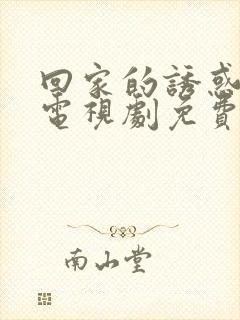 回家的誘惑
電視劇免費
南山堂